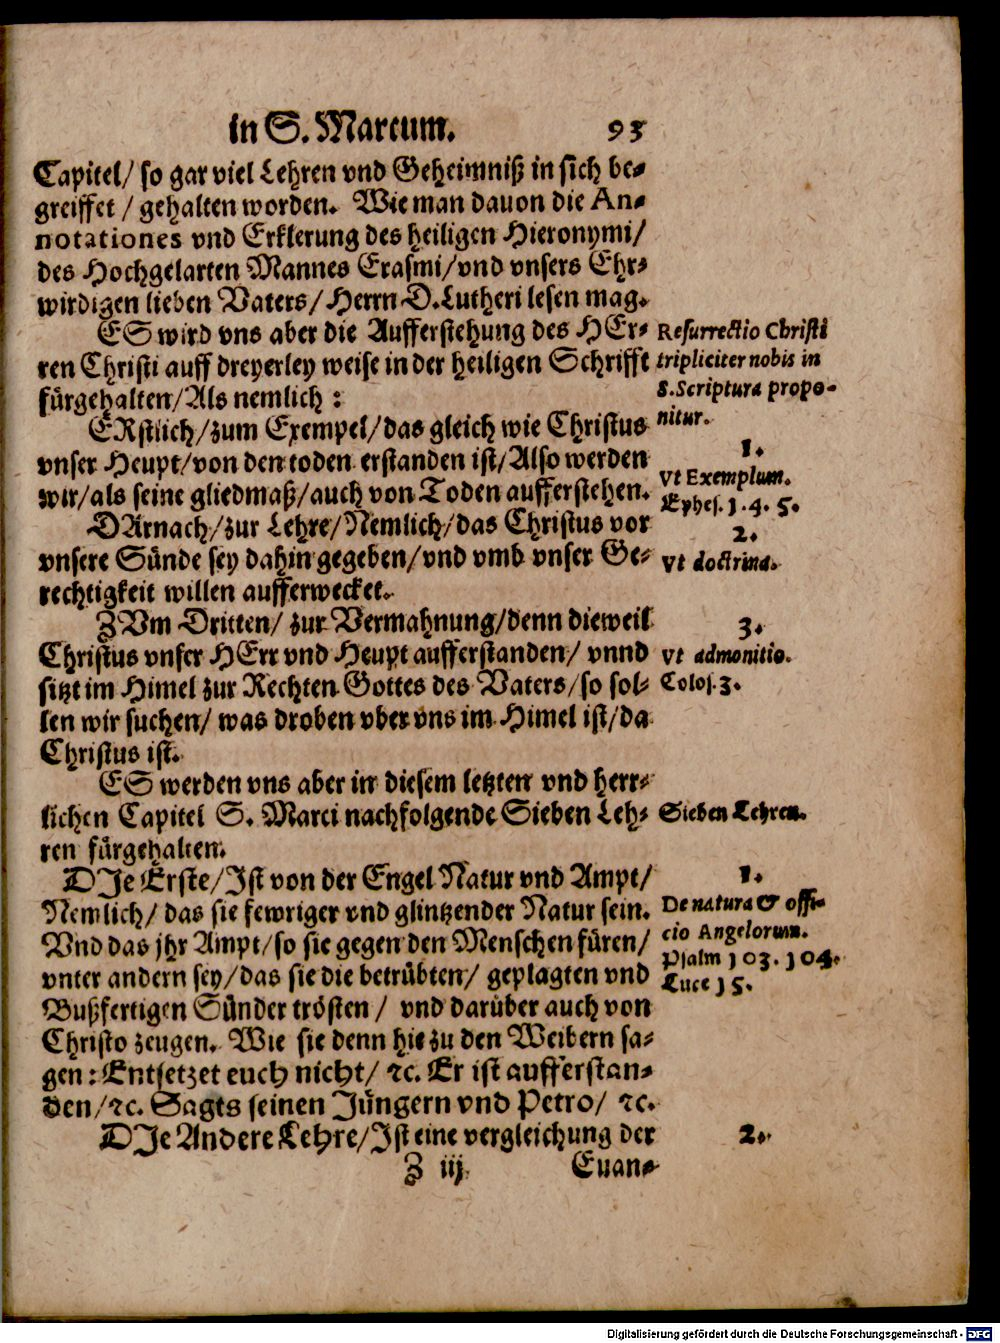 in S. Marcum. 93
Capitel/ so gar viel Lehren vnd Geheimniß in sich be-
greiffet / gehalten worden. Wie man dauon die An-
notationes vnd Erklerung des heiligen Hieronymi/
des Hochgelarten Mannes Erasmi/vnd vnsers Ehr-
wirdigen lieben Vaters/ Herrn D.Lutheri lesen mag.
ES wird vns aber die Aufferstehung des HEr-
ren Christi auff dreyerley weise in der heiligen Schrifft
fürgehalten/Als nemlich :
Resurrectio Christi
tripliciter nobis in
S.Scriptura propo-
nitur.
ERstlich/zum Exempel/das gleich wie Christus
vnser Heupt/von den toden erstanden ist/Also werden
wir/als seine gliedmaß/auch von Toden aufferstehen.
1.
Vt Exemplum.
Ephes. 1. 4. 5.
DArnach/zur Lehre/Nemlich/das Christus vor
vnsere Sünde sey dahin gegeben/vnd vmb vnser Ge-
rechtigkeit willen aufferwecket.
2.
Vt doctrina.
ZVm Dritten/ zur Vermahnung/denn dieweil
Christus vnser HErr vnd Heupt aufferstanden/ vnnd
sitzt im Himel zur Rechten Gottes des Vaters/so sol-
len wir suchen/ was droben vber vns im Himel ist/da
Christus ist.
3.
Vt admonitio.
Colos. 3.
ES werden vns aber in diesem letzten vnd herr-
lichen Capitel S. Marci nachfolgende Sieben Leh-
ren fürgehalten.
Sieben Lehren.
DJe Erste/Jst von der Engel Natur vnd Ampt/
Nemlich/ das sie fewriger vnd glintzender Natur sein.
Vnd das jhr Ampt/so sie gegen den Menschen füren/
vnter andern sey/das sie die betrübten/ geplagten vnd
Bußfertigen Sünder trösten / vnd darüber auch von
Christo zeugen. Wie sie denn hie zu den Weibern sa-
gen : Entsetzet euch nicht/ ꝛc. Er ist aufferstan-
den/ꝛc. Sagts seinen Jüngern vnd Petro/ ꝛc.
1.
De natura & offi-
cio Angelorum.
Psalm 103. 104.
Luce 15.
DJe Andere Lehre/Jst eine vergleichung der
2.
Z iij
Euan-
Digitalisierung gefördert durch die Deutsche Forschungsgemeinschaft - DFG